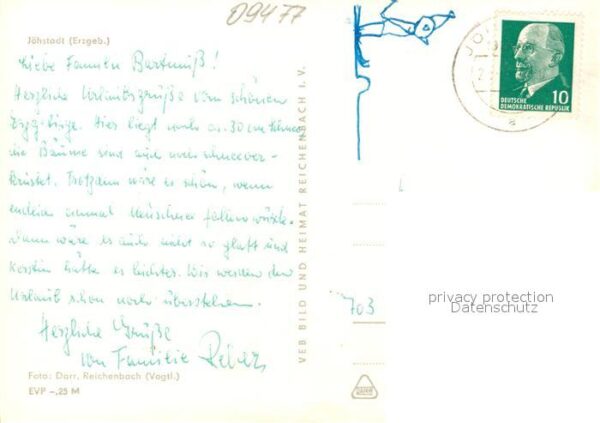 09477
Jöhstadt (Erzgeb.)
Liebe Familie Bartmuß!
Herzliche Urlaubsgrüße vom schönen
Erzgebirge. Hier liegt noch ca. 30 cm Schnee
die Bäume sind auch noch schneever-
krustet. Trotzdem wäre es schön, wenn
endlich einmal Neuschnee fallen würde.
Dann wäre es auch nicht so glatt und
Kerstin hätte es leichter. Wir werden den
Urlaub schon noch überstehen.
Herzliche Grüße
von Familie
Foto: Darr, Reichenbach (Vogtl.)
EVP –,25 M
VEB BILD UND HEIMAT REICHENBACH I. V.
JÖ
10
DEUTSCHE
DEMOKRATISCHE REPUBLIK
a
703
privacy protection
Datenschutz